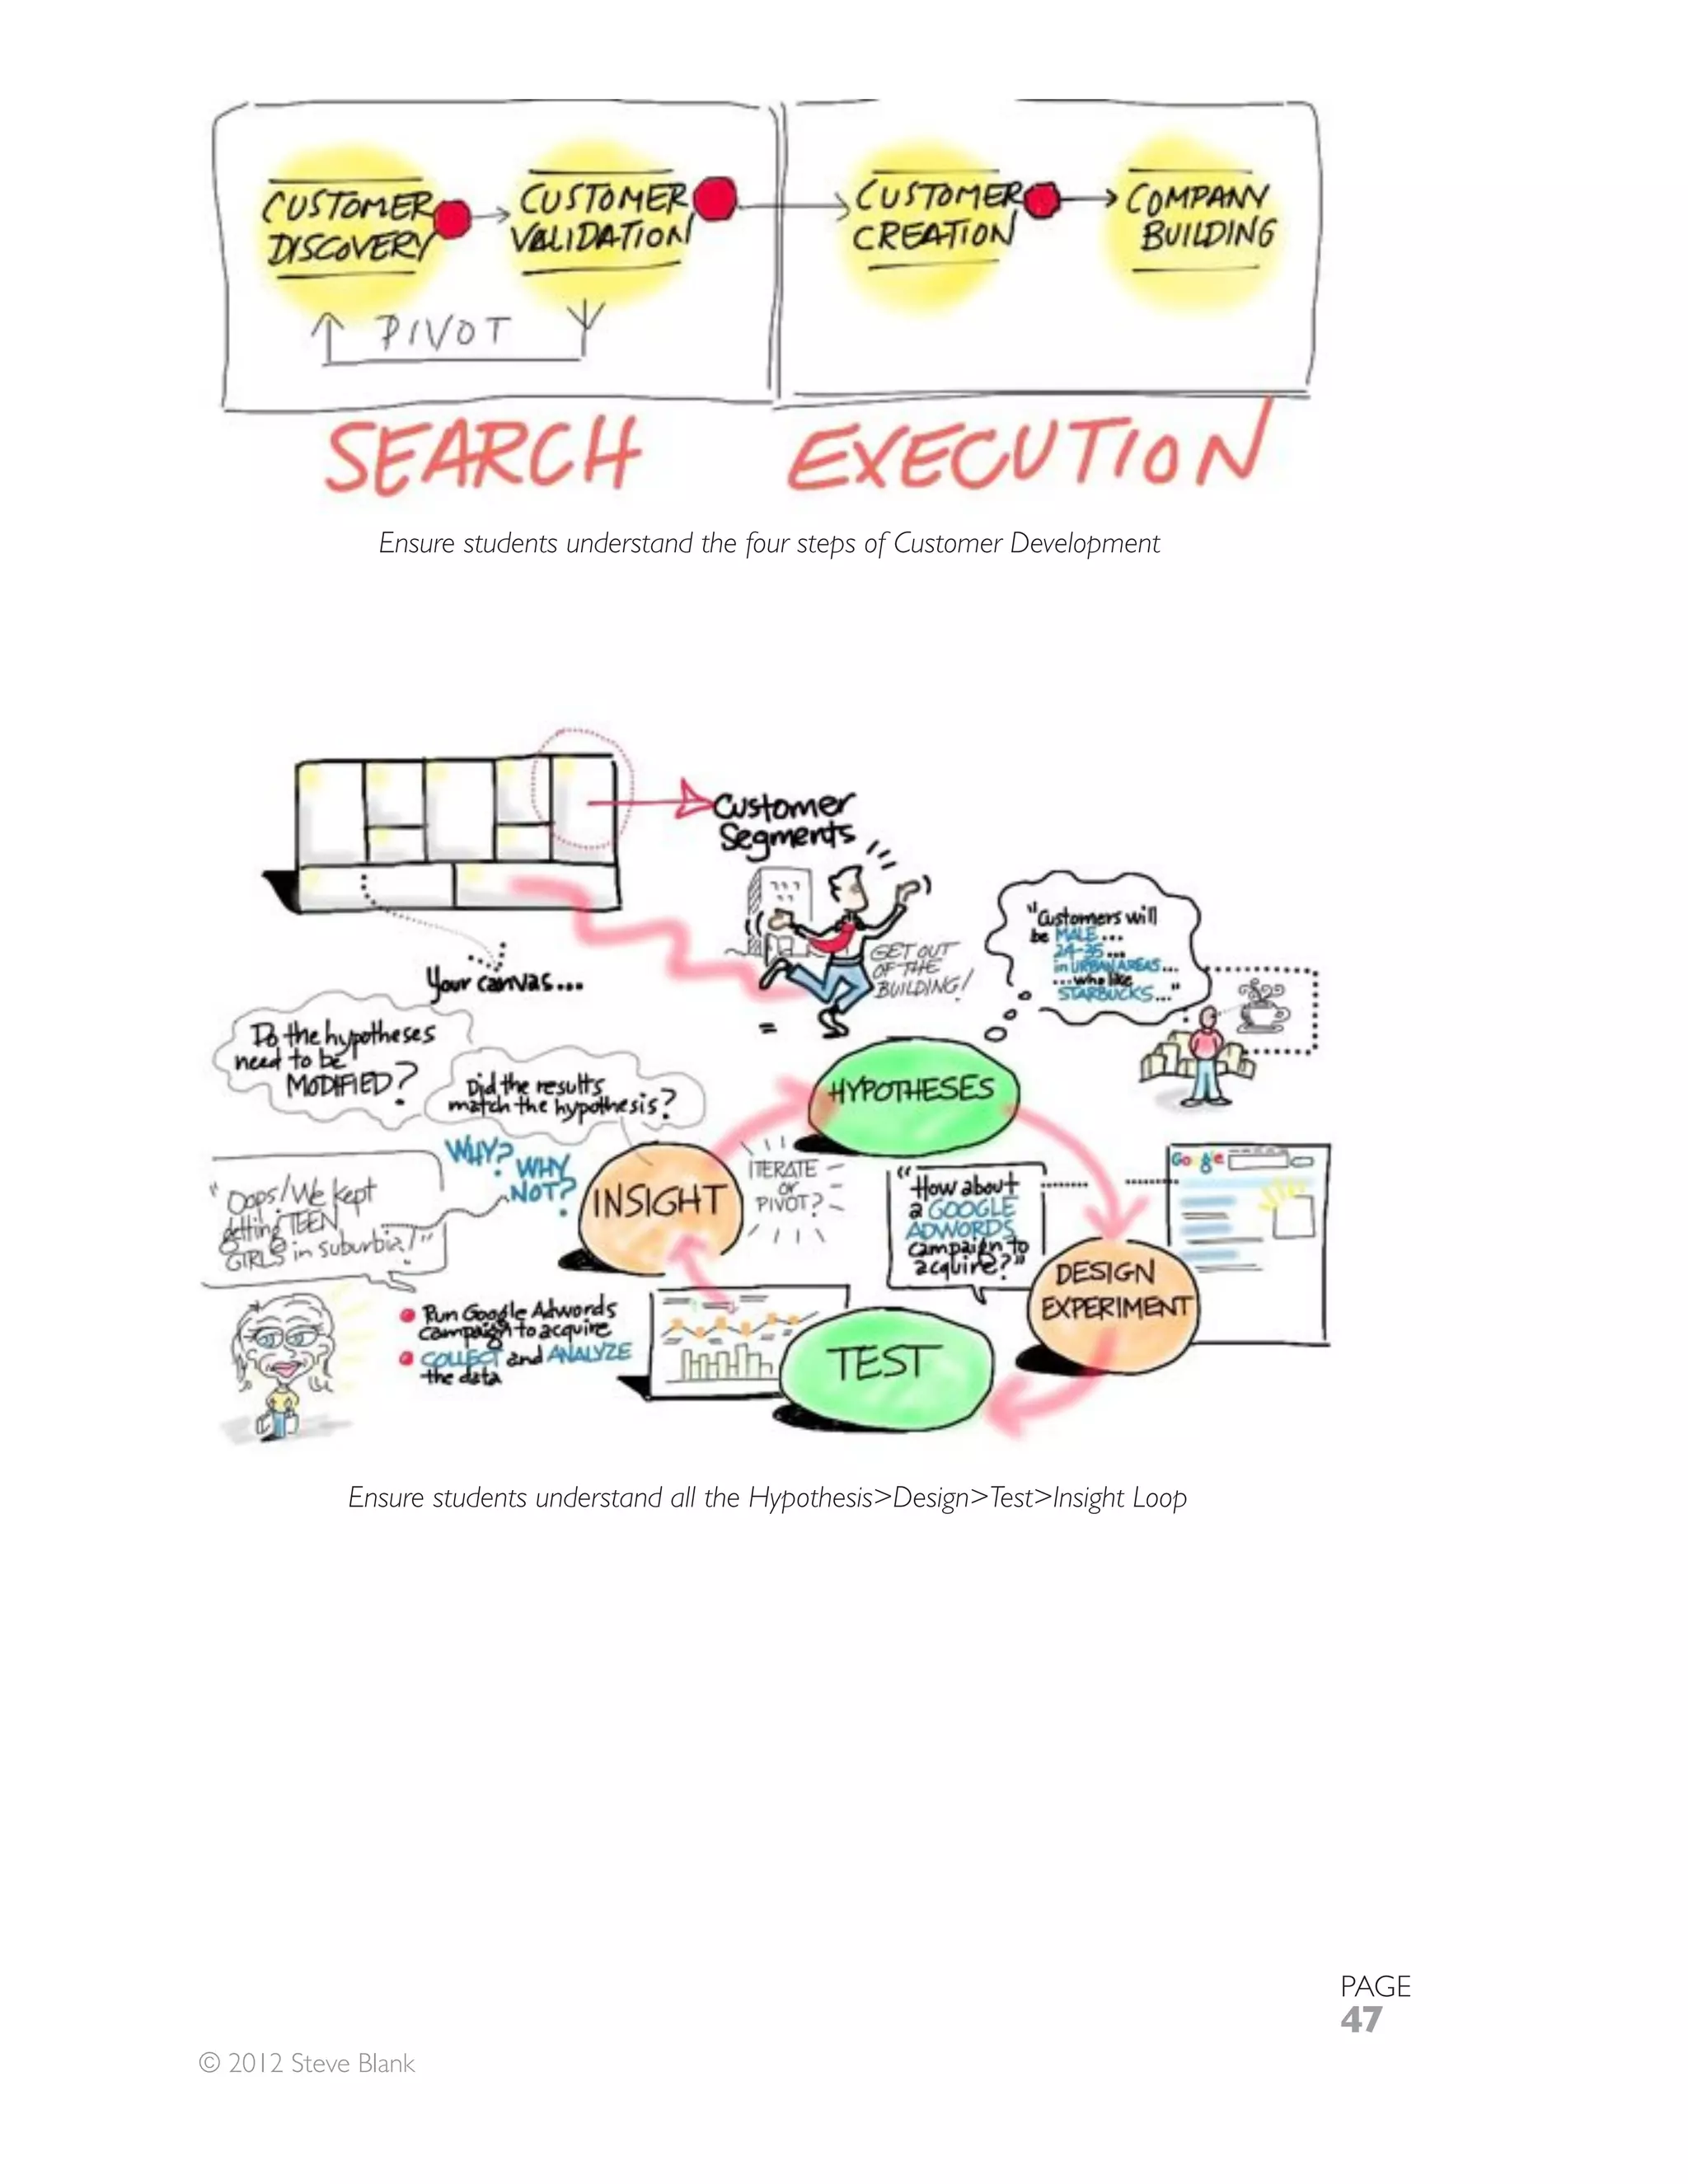 CUSTOMER
DISCOVERY
CUSTOMER
VALIDATION
CUSTOMER
CREATION
COMPANY
BUILDING
PIVOT
SEARCH
EXECUTION
Ensure students understand the four steps of Customer Development
Customer
Segments
GET OUT
OF THE
BUILDING!
"Customers will
be MALE...
24-35...
in URBAN AREAS...
...who like
STARBUCKS..."
Your canvas...
=
Do the hypotheses
need to be
MODIFIED?
Did the results
match the hypothesis?
HYPOTHESES
WHY?
WHY
NOT?
INSIGHT
ITERATE
or
PIVOT?
"How about
a GOOGLE
ADWORDS
campaign to
acquire?"
Google
"Oops! We kept
getting TEEN
GIRLS in suburbia!"
DESIGN
EXPERIMENT
Run Google Adwords
campaign to acquire
COLLECT and ANALYZE
the data
TEST
Ensure students understand all the Hypothesis>Design>Test>Insight Loop
PAGE
47
© 2012 Steve Blank